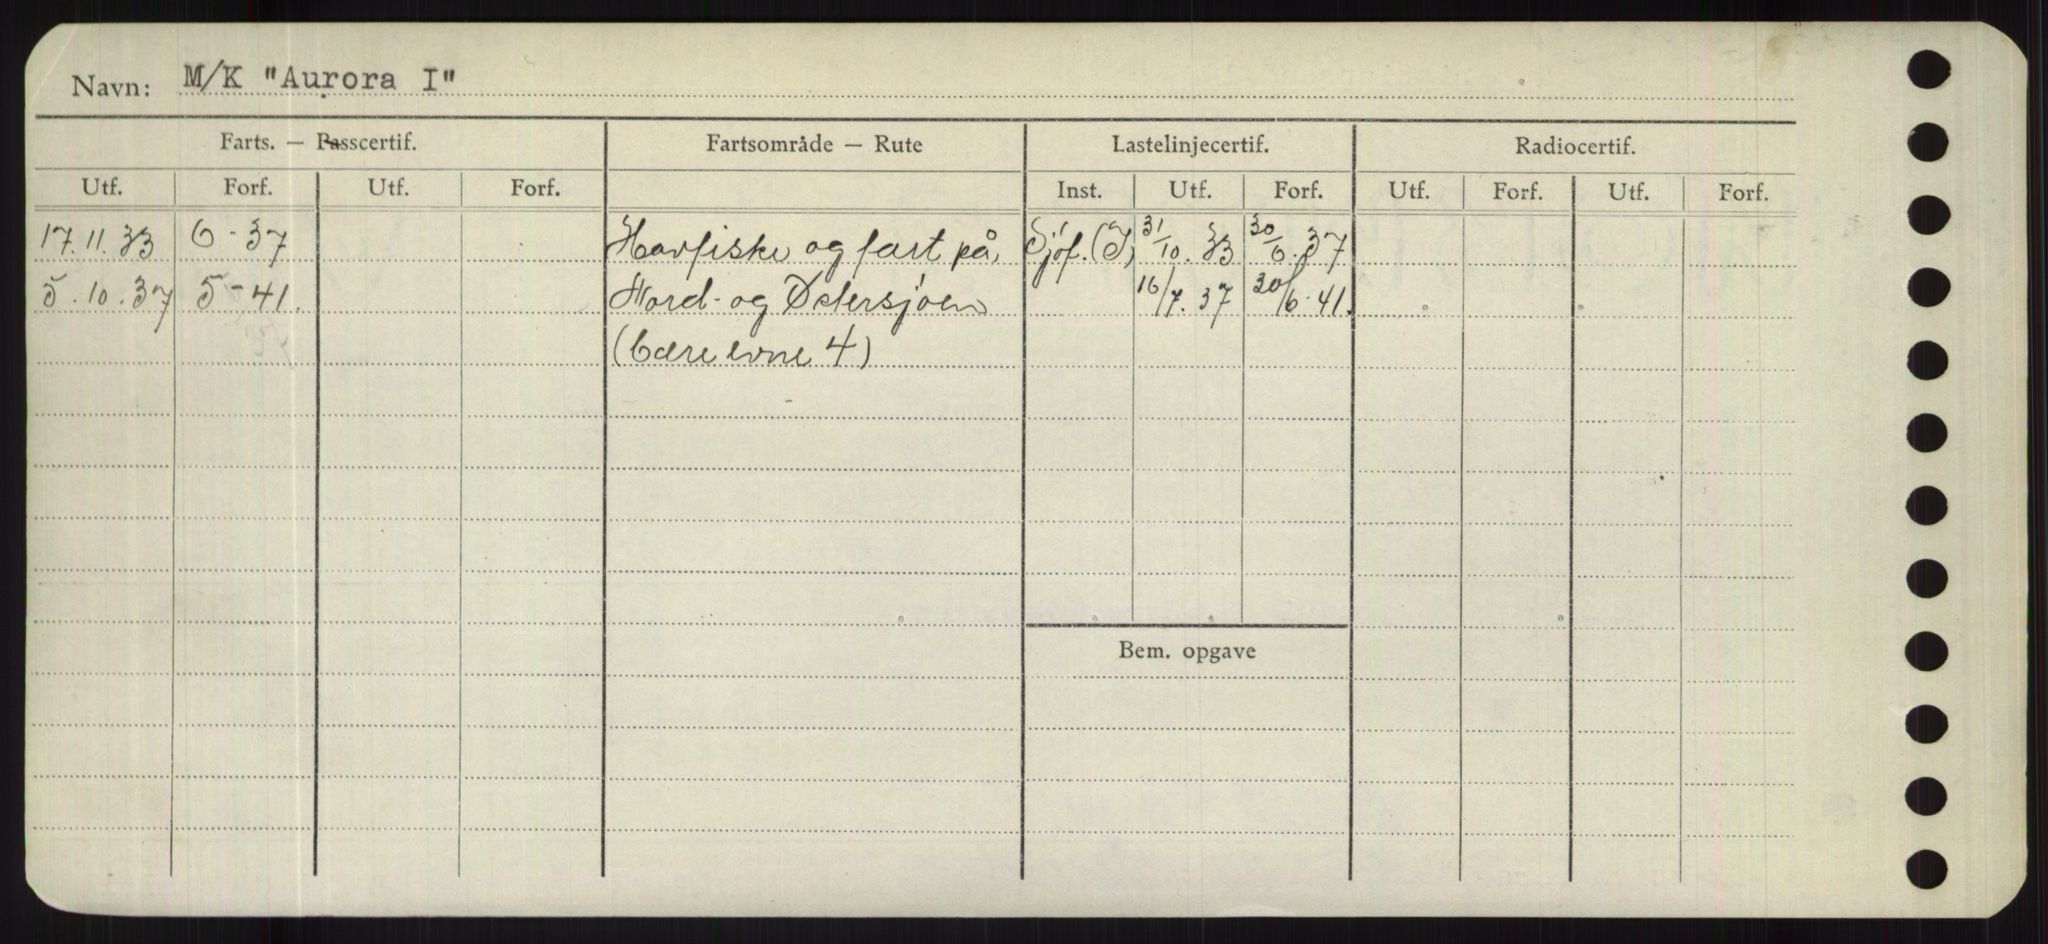 Navn: M/K "Aurora I"
Farts. — Passcertif. Fartsområde — Rute Lastelinjecertif. Radiocertif.
Utf. Forf. Utf. Forf. Inst. Utf. Forf. Utf. Forf. Utf. Forf.
17.11.33 6-37 Havfiske og fart på Sjöf.(I) 31/10.33 30/6.37
5.10.37 5-41. Nord- og Östersjöen 16/7.37 30/6.41.
(bære evne 4)
Bem. opgave